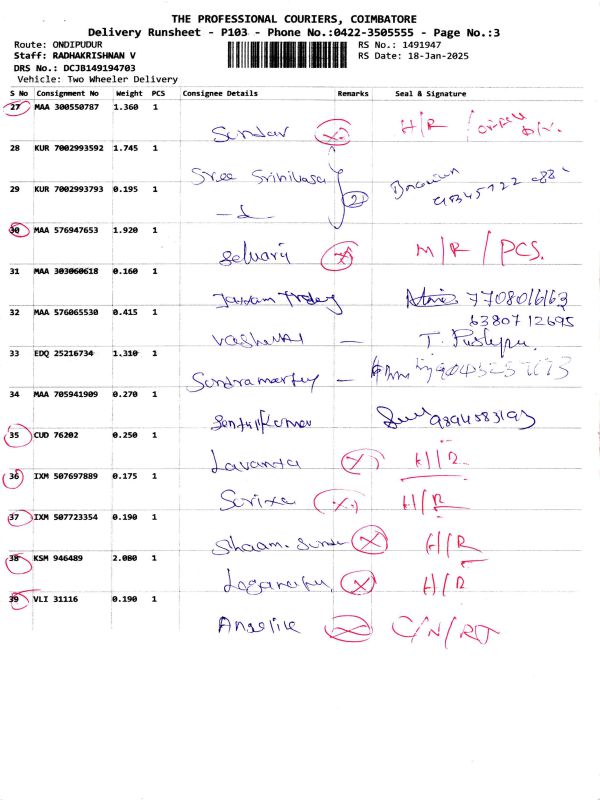 THE PROFESSIONAL COURIERS, COIMBATORE
Delivery Runsheet - P103 - Phone No.:0422-3505555 - Page No.:3
Route: ONDIPUDUR
RS No.: 1491947
Staff: RADHAKRISHNAN V
RS Date: 18-Jan-2025
DRS No.: DCJB149194703
Vehicle: Two Wheeler Delivery
S No Consignment No Weight PCS Consignee Details Remarks Seal & Signature
27 MAA 300550787 1.360 1
Sundar X H/R
28 KUR 7002993592 1.745 1
Sree Srinivasa 2
29 KUR 7002993793 0.195 1
30 MAA 576947653 1.920 1
Selvaraj X M/R / PCS.
31 MAA 303060618 0.160 1
7708016163
32 MAA 576065530 0.415 1
63807 12695
33 EDQ 25216734 1.310 1
34 MAA 705941909 0.270 1
Senthilkumar 9894583193
35 CUD 76202 0.250 1
Lavanya X H/R
36 IXM 507697889 0.175 1
X H/R
37 IXM 507723354 0.190 1
X H/R
38 KSM 946489 2.080 1
X H/R
39 VLI 31116 0.190 1
X C/N/RT